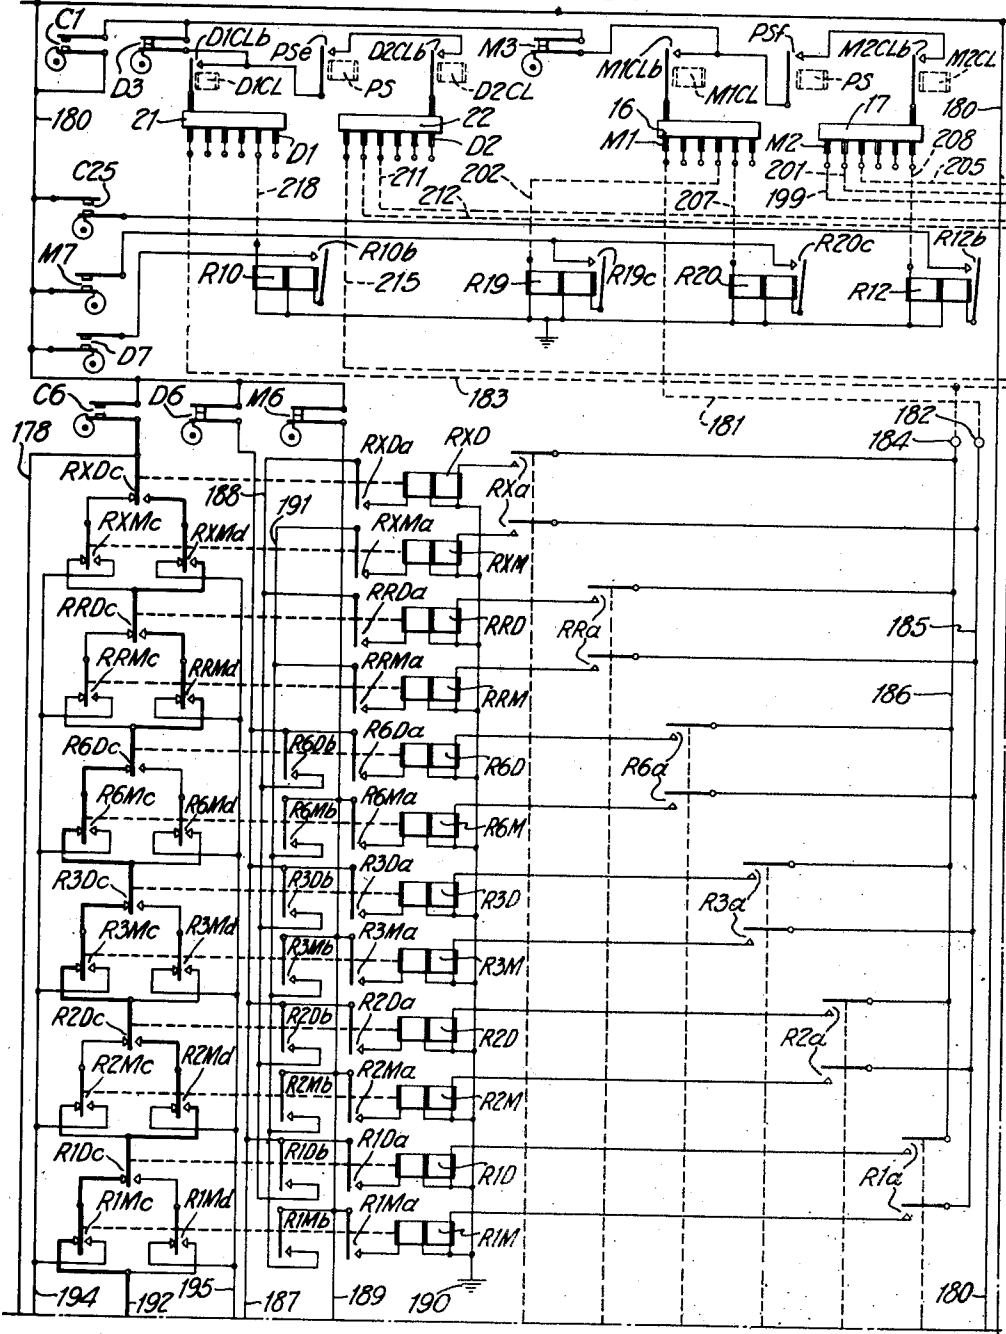 C1
D3
D1CLb
D1CL
PSe
PS
D2CLb
D2CL
M3
M1CLb
M1CL
PSf
PS
M2CLb
M2CL
180
21
D1
22
D2
16
M1
17
M2
180
208
218
211
202
212
207
201
199
205
C25
M7
R10
R10b
215
R19
R19c
R20
R20c
R12
R12b
D7
183
181
182
184
C6
D6
M6
178
RXDc
188
191
RXDa
RXD
RXa
RXMc
RXMd
RXMa
RXM
RRDc
RRDa
RRD
RRa
185
RRMc
RRMd
RRMa
RRM
186
R6Dc
R6Db
R6Da
R6D
R6a
R6Mc
R6Md
R6Mb
R6Ma
R6M
R3Dc
R3Db
R3Da
R3D
R3a
R3Mc
R3Md
R3Mb
R3Ma
R3M
R2Dc
R2Db
R2Da
R2D
R2a
R2Mc
R2Md
R2Mb
R2Ma
R2M
R1Dc
R1Db
R1Da
R1D
R1a
R1Mc
R1Md
R1Mb
R1Ma
R1M
194
192
195
187
189
190
180